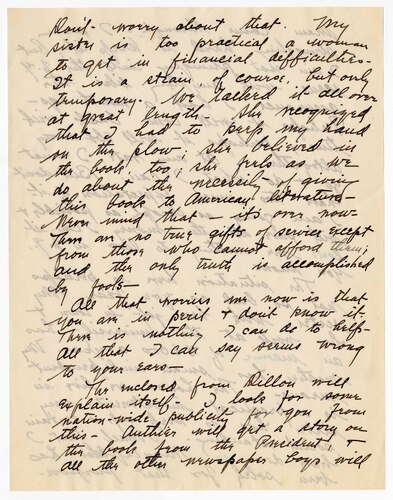 Don't worry about that. My
sister is too practical a woman
to get in financial difficulties-
It is a strain, of course, but only
temporary. We talked it all over
at great length- She recognized
that I had to keep my hand
on the plow; she believed in
the book, too; she feels as we
do about the necessity of giving
this book to American literature-
Never mind that - it's over now-
There are no true gifts of service except
from those who cannot afford them;
and the only truth is accomplished
by fools-
All that worries me now is that
you are in peril + don't know it-
There is nothing I can do to help-
All that I can say seems wrong
to your ears-
The enclosed from Dillon will
explain itself- I look for some
nation-wide publicity for you from
this- Authier will get a story on
the book from the President, +
all the other newspaper boys will